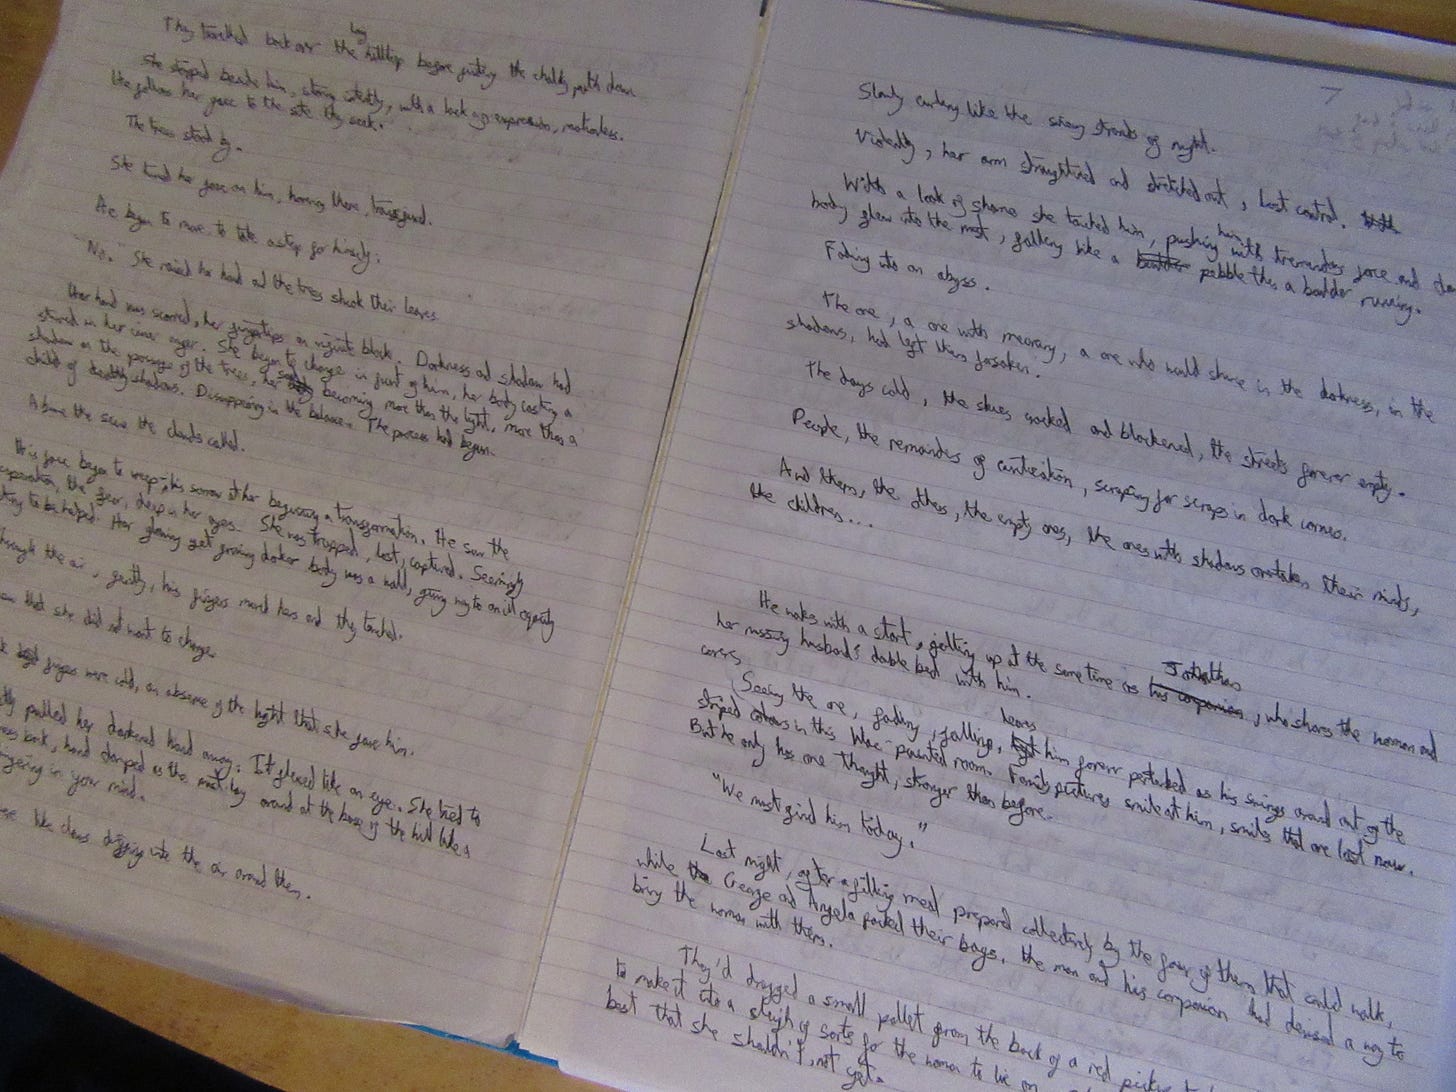 They travelled back over the long hilltop before joining the chalky path down.
She stopped beside him, staring intently, with a lack of expression, motionless.
He follows her gaze to the site they seek.
The trees stood by.
She turned her gaze on him, honing there, transfigured.
He began to move to take a step for himself;
No. She raised her hand and the trees shook their leaves.
Her hand was scarred, her fingertips an ingrate black. Darkness and shadow had
stirred in her inner anger. She began to change in front of him, her body casting a
shadow on the passage of the trees, her becoming more than the light, more than a
child of shadows. Disappearing in the balance. The process had begun.
Above the scene the clouds called.
His face began to weep, his sorrow at her beginning a transformation. He saw the
the fear, deep in her eyes. She was trapped, lost, captured. Seemingly
to be helped. Her glowing yet growing darker body was a wall, giving way to an ill
through the air, gently, his fingers meet hers and they touched.
that she did not want to change.
fingers were cold, an absence of the light that she gave him.
pulled her darkened hand away. It glazed like an eye. She tried to
back, hand clamped as the mist lay around at the base of the hill like a
lingering in your mind.
like claws digging into the air around them.
7
Slowly curling like the strands of night.
Violently, her arm straightened and stretched out, lost control.
With a look of shame she touched him, pushing him with tremendous force and
body flew into the mist, falling like a pebble then a boulder running.
Fading into an abyss.
The one, a one with memory, a one who would shine in the darkness, in the
shadows, had left them forsaken.
The days cold, the skies and blackened, the streets forever empty.
People, the remainders of civilisation, scraping for scraps in dark corners.
And them, the others, the empty ones, the ones with shadows overtaken their minds,
the children...
He wakes with a start, getting up at the same time as his companion Jonathan, who shares the woman and
her missing husband's double bed with him.
Seeing the one, fading, falling, leaves him forever perturbed as his swings around out of the
covers,
striped colours in this blue-painted room. Family pictures smile at him, smiles that are lost now.
But he only has one thought, stronger than before.
"We must find him today."
Last night, after a filling meal prepared collectively by the four of them that could walk,
while George and Angela packed their bags, the man and his companion had devised a way to
bring the woman with them.
They'd dragged a small pallet from the back of a red pickup
to make it into a sleigh of sorts for the woman to lie on
best that she shouldn't, not yet.